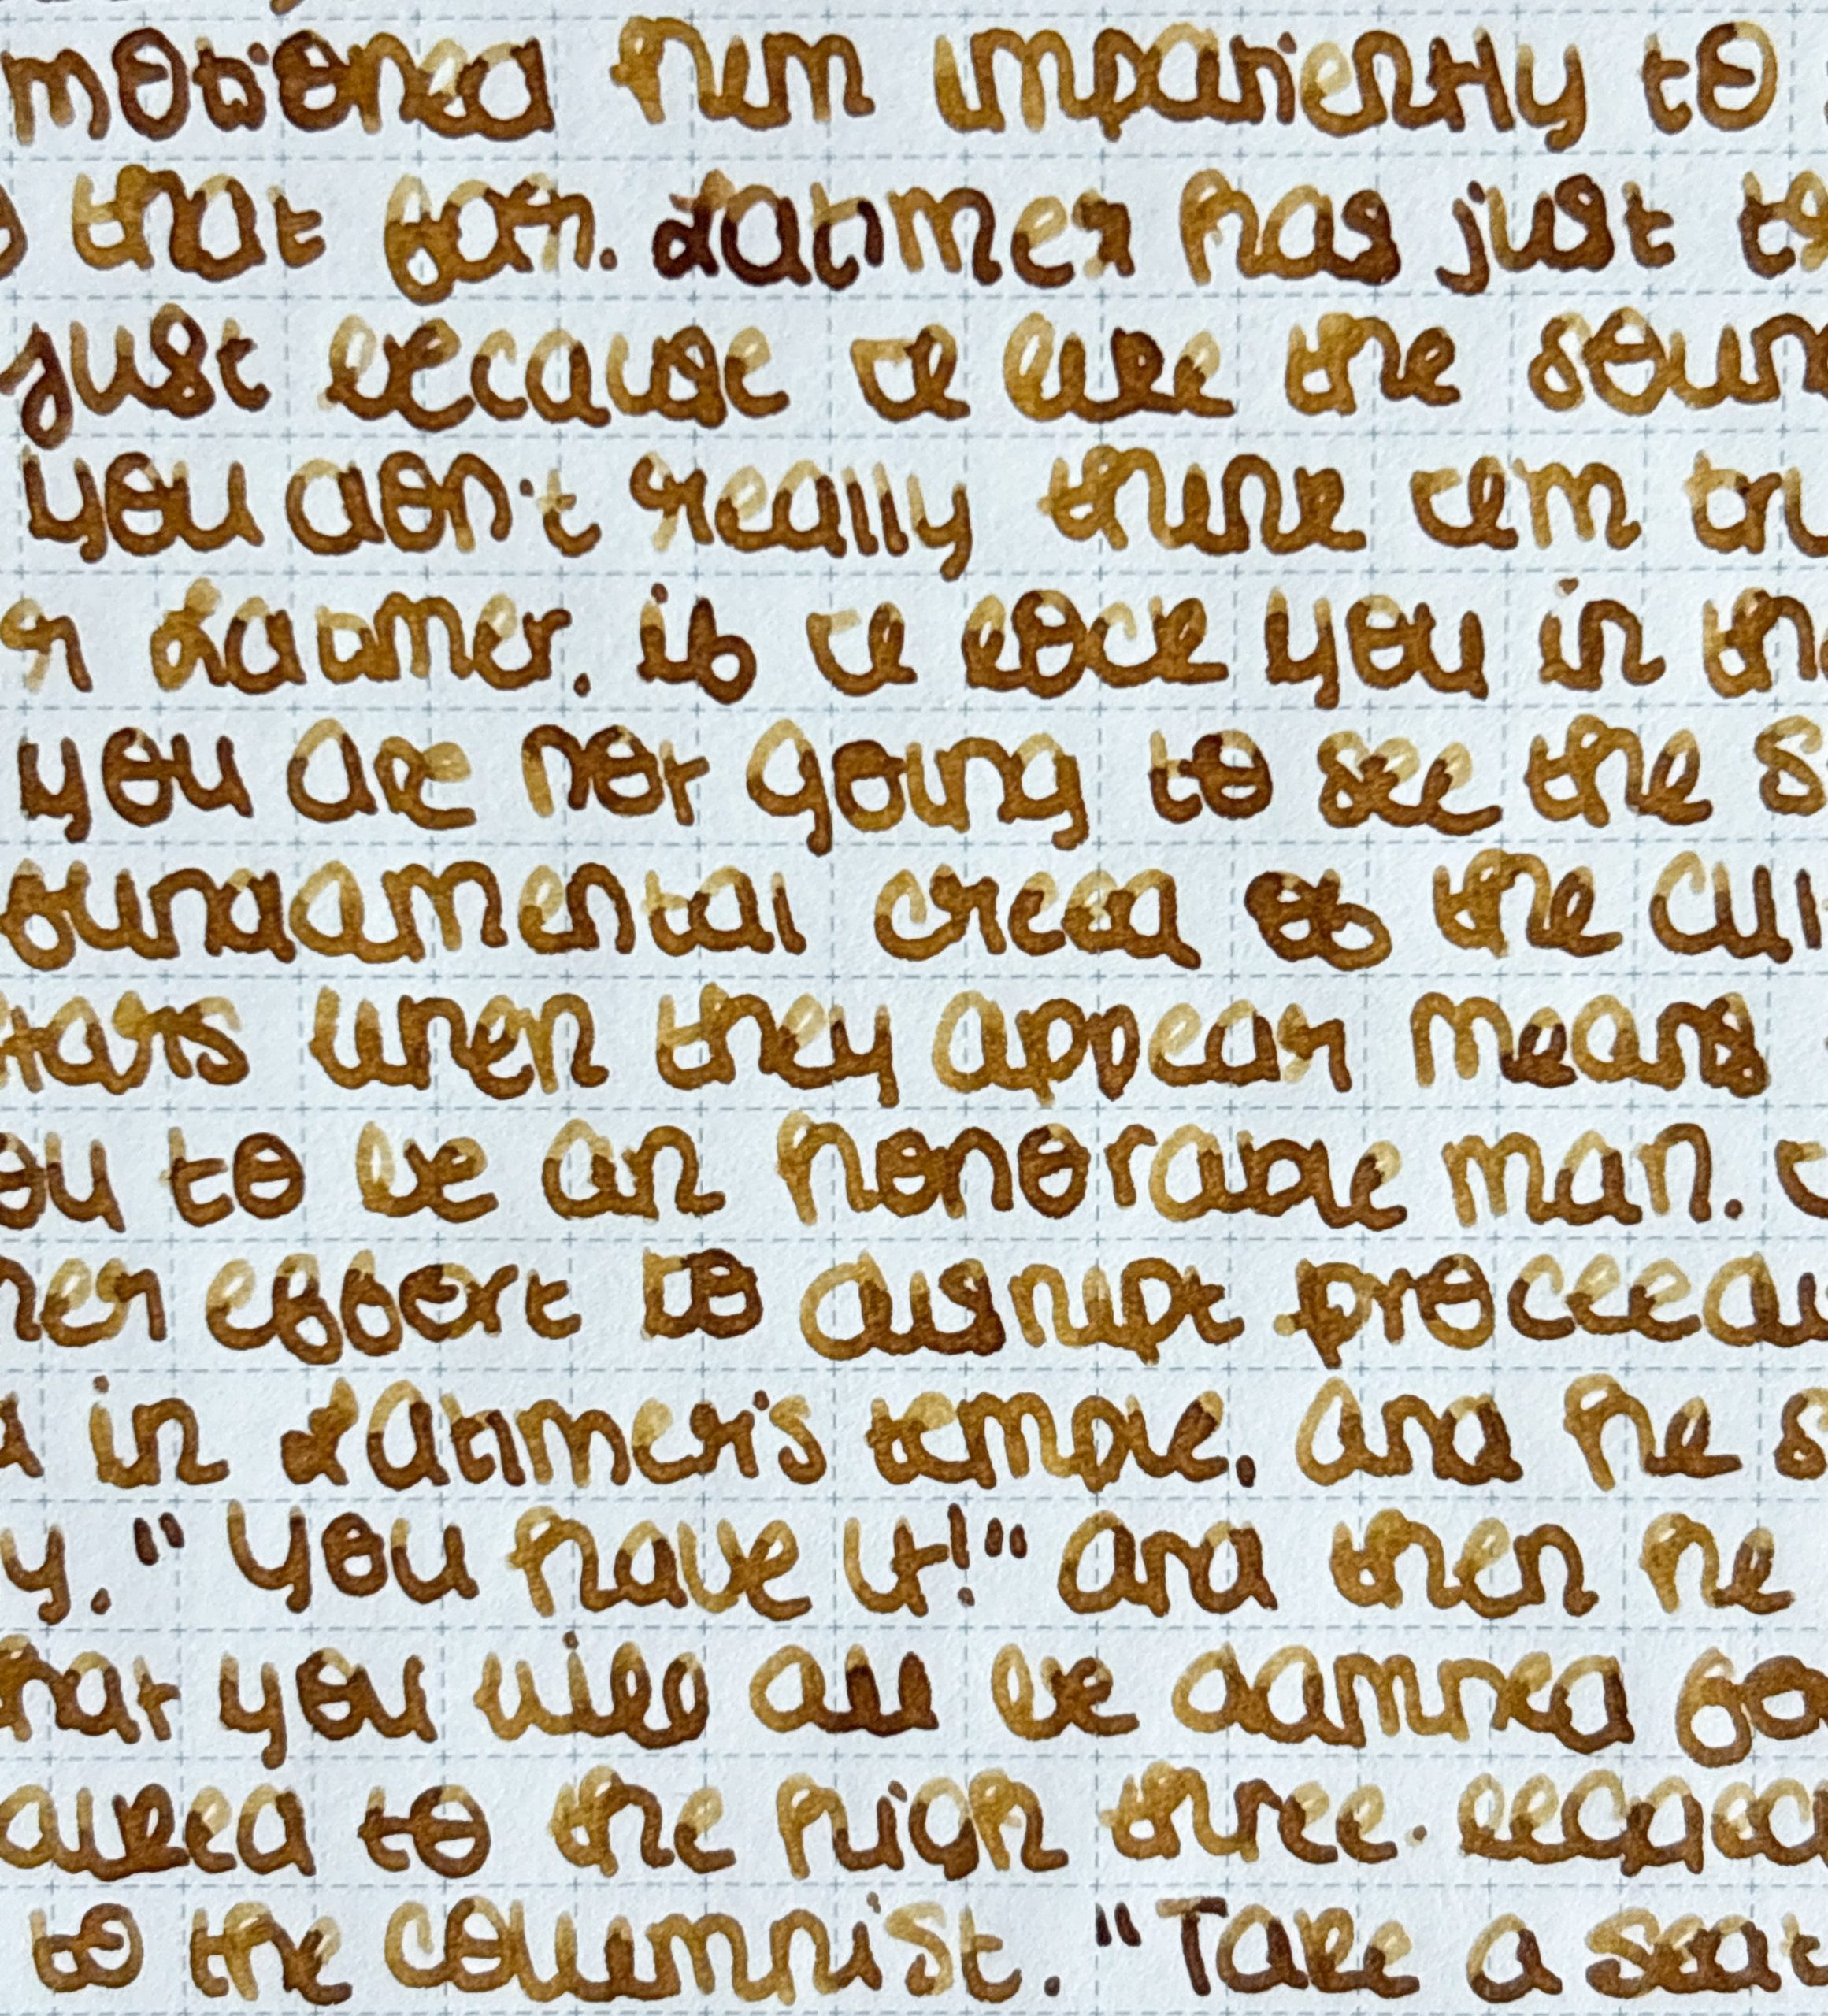 motioned him impatiently to
that for. Latimer has just
just because I like the soun
you don't really think I'm
Latimer. if I lock you in the
you are not going to see the s
fundamental creed of the
when they appear means
you to be an honorable man. I
her effort to disrupt proceedi
in Latimer's temple. and he
y." "You have it!" and then he
hat you will all be damned
to the high three.
to the columnist. "Take a seat